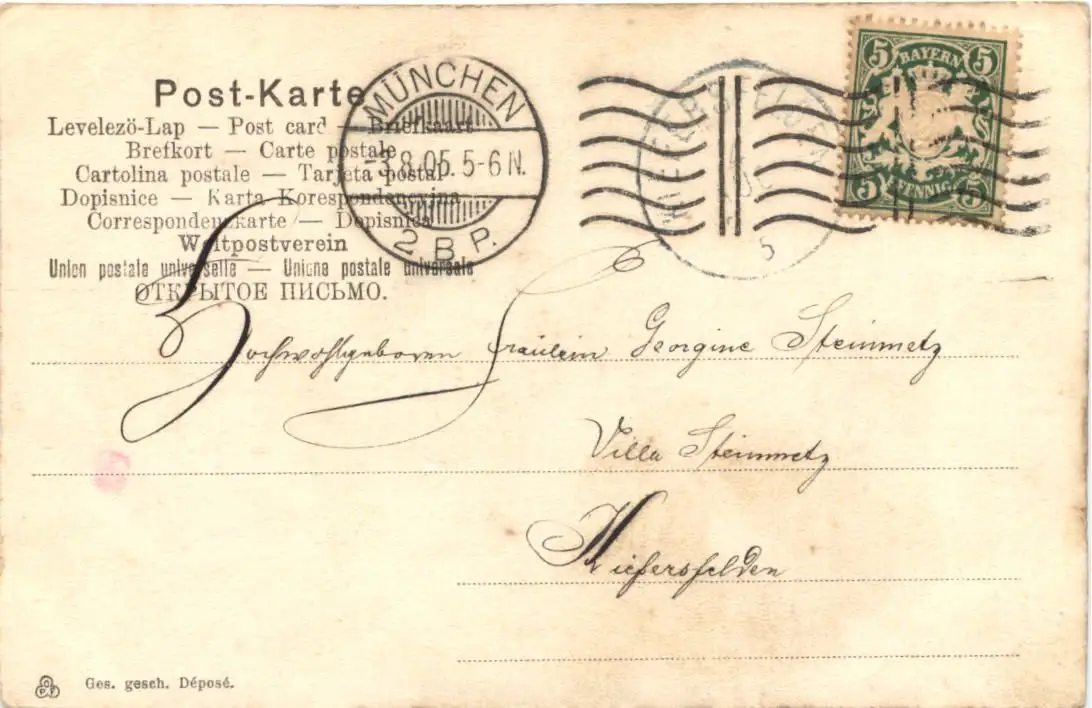 Post-Karte
Levelezö-Lap — Post card — Briefkaart
Brefkort — Carte postale
Cartolina postale — Tarjeta postal
Dopisnice — Karta Korespondencyjna
Correspondenzkarte — Dopisnica
Weltpostverein
Union postale universelle — Unione postale universale
ОТКРЫТОЕ ПИСЬМО.
MÜNCHEN
-3.8.05. 5-6 N.
2 B.P.
5 BAYERN 5
5 PFENNIG 5
Hochwohlgeboren Fräulein Georgine Steinmetz
Villa Steinmetz
Kiefersfelden
Ges. gesch. Déposé.